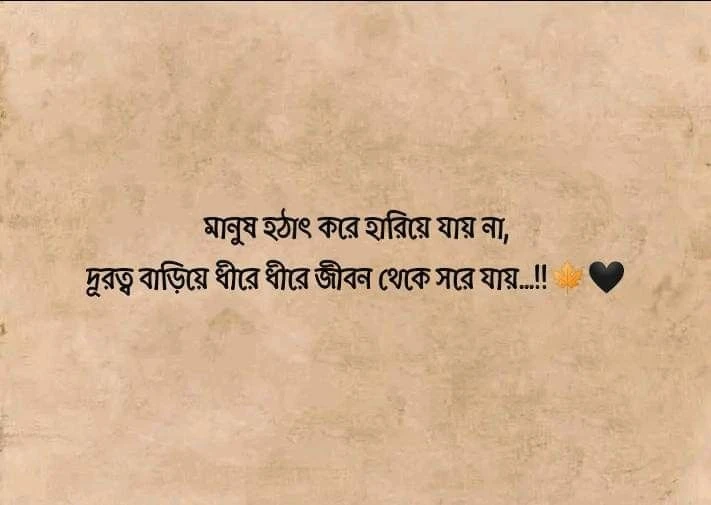 মানুষ হঠাৎ করে হারিয়ে যায় না,
দূরত্ব বাড়িয়ে ধীরে ধীরে জীবন থেকে সরে যায়...!! 🍁🖤